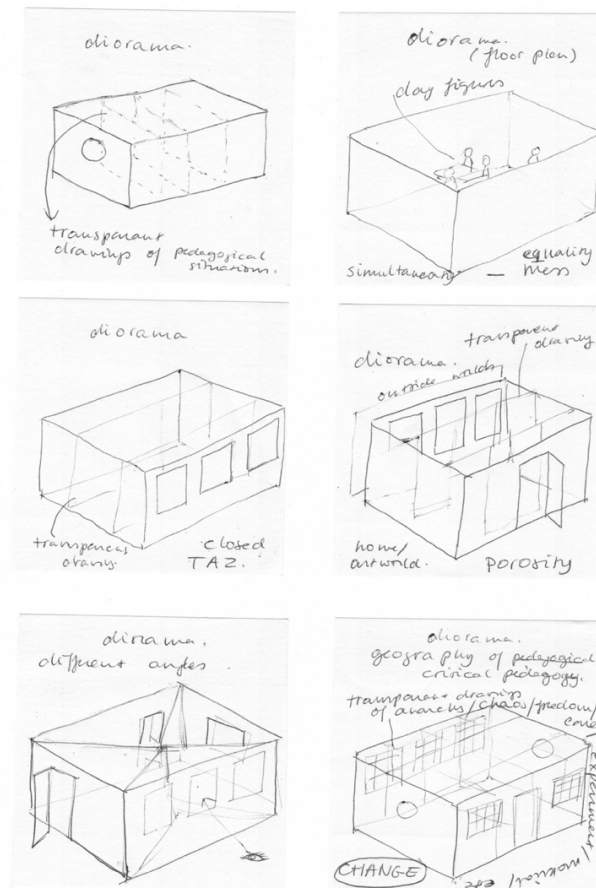 diorama.
transparent
drawings of pedagogical
situations.
diorama.
(floor plan)
clay figures
equality
simultaneity — mess
diorama
transparent
drawings.
closed
TAZ.
transparent
drawing
diorama.
outside worlds
home/
artworld.
porosity
diorama.
different angles.
diorama.
geography of pedagogical
critical pedagogy.
transparent drawings
of anarchy/chaos/freedom/
experiment/
CHANGE